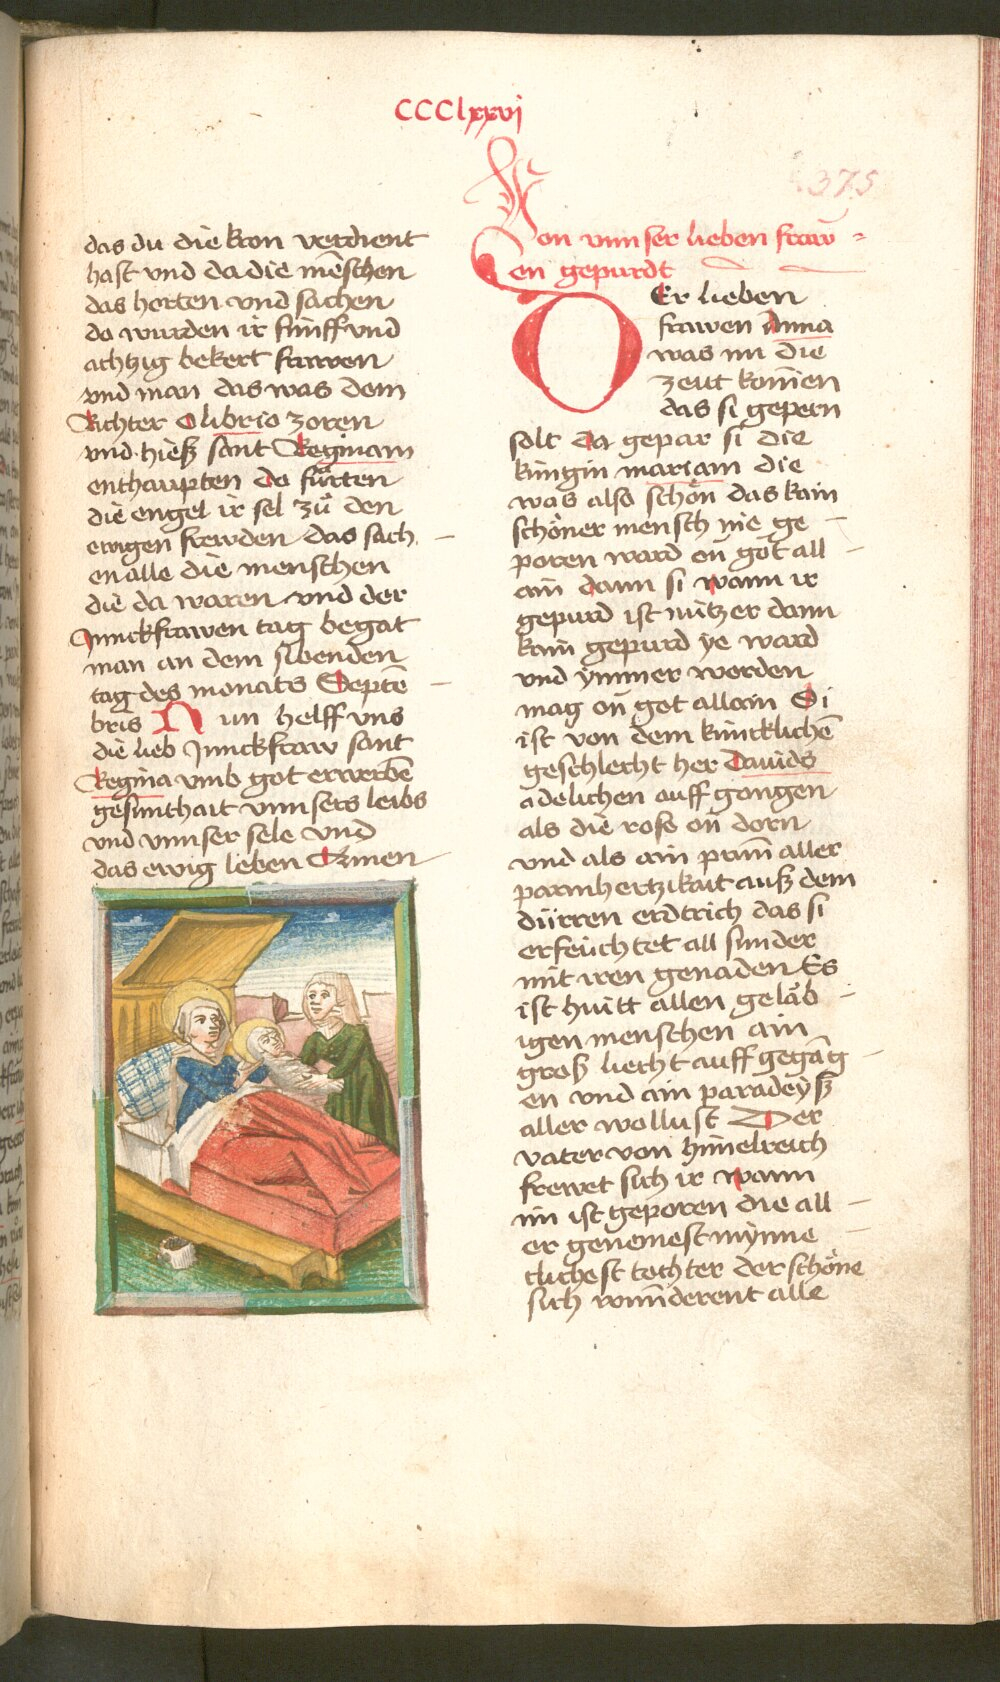 CCClxxvi
375
das du die kron verdient
hast vnd da die mēschen
das horten vnd sachen
do wurden ir fünff vnd
achtzig bekert frawen
vnd man das was dem
Richter Olibrio zoren
vnd hieß sant Reginam
enthaupten do fürten
die engel ir sel zů den
ewigen frewden das sach
en alle die menschen
die da waren vnd der
Junckfrawen tag begat
man an dem sibenden
tag des monats Septē
bris Nun helff vns
die lieb Junckfraw sant
Regina vmb got erwerbē
gesunthait vnnsers leibs
vnd vnnser sele vnd
das ewig leben Amen
Von vnnser lieben fraw
en gepurdt
DEr lieben
frawen Anna
was nu die
zeit komen
das si gepern
solt da gepar si die
küngin mariam die
was also schön das kain
schöner mensch nie ge
poren ward on̄ got all
ain dann si wann ir
gepurd ist nützer dann
kain gepurd ye ward
vnd ymmer werden
mag on̄ got allain Si
ist von dem künicklichē
geschlecht her Dauids
adelichen auff gangen
als die rose on̄ dorn
vnd als ain prun̄ aller
parmhertzikait auß dem
dürren erdtrich das si
erfeüchtet all sunder
mit iren genaden Es
ist hüitt allen geläb
igen menschen ain
groß liecht auff gegāg
en vnd ain paradeyß
aller wollust Der
vater von himelreich
frewet sich ir wann
im ist geporen die all
er genemest mynne
clichest tochter der schöne
sich wunderent alle